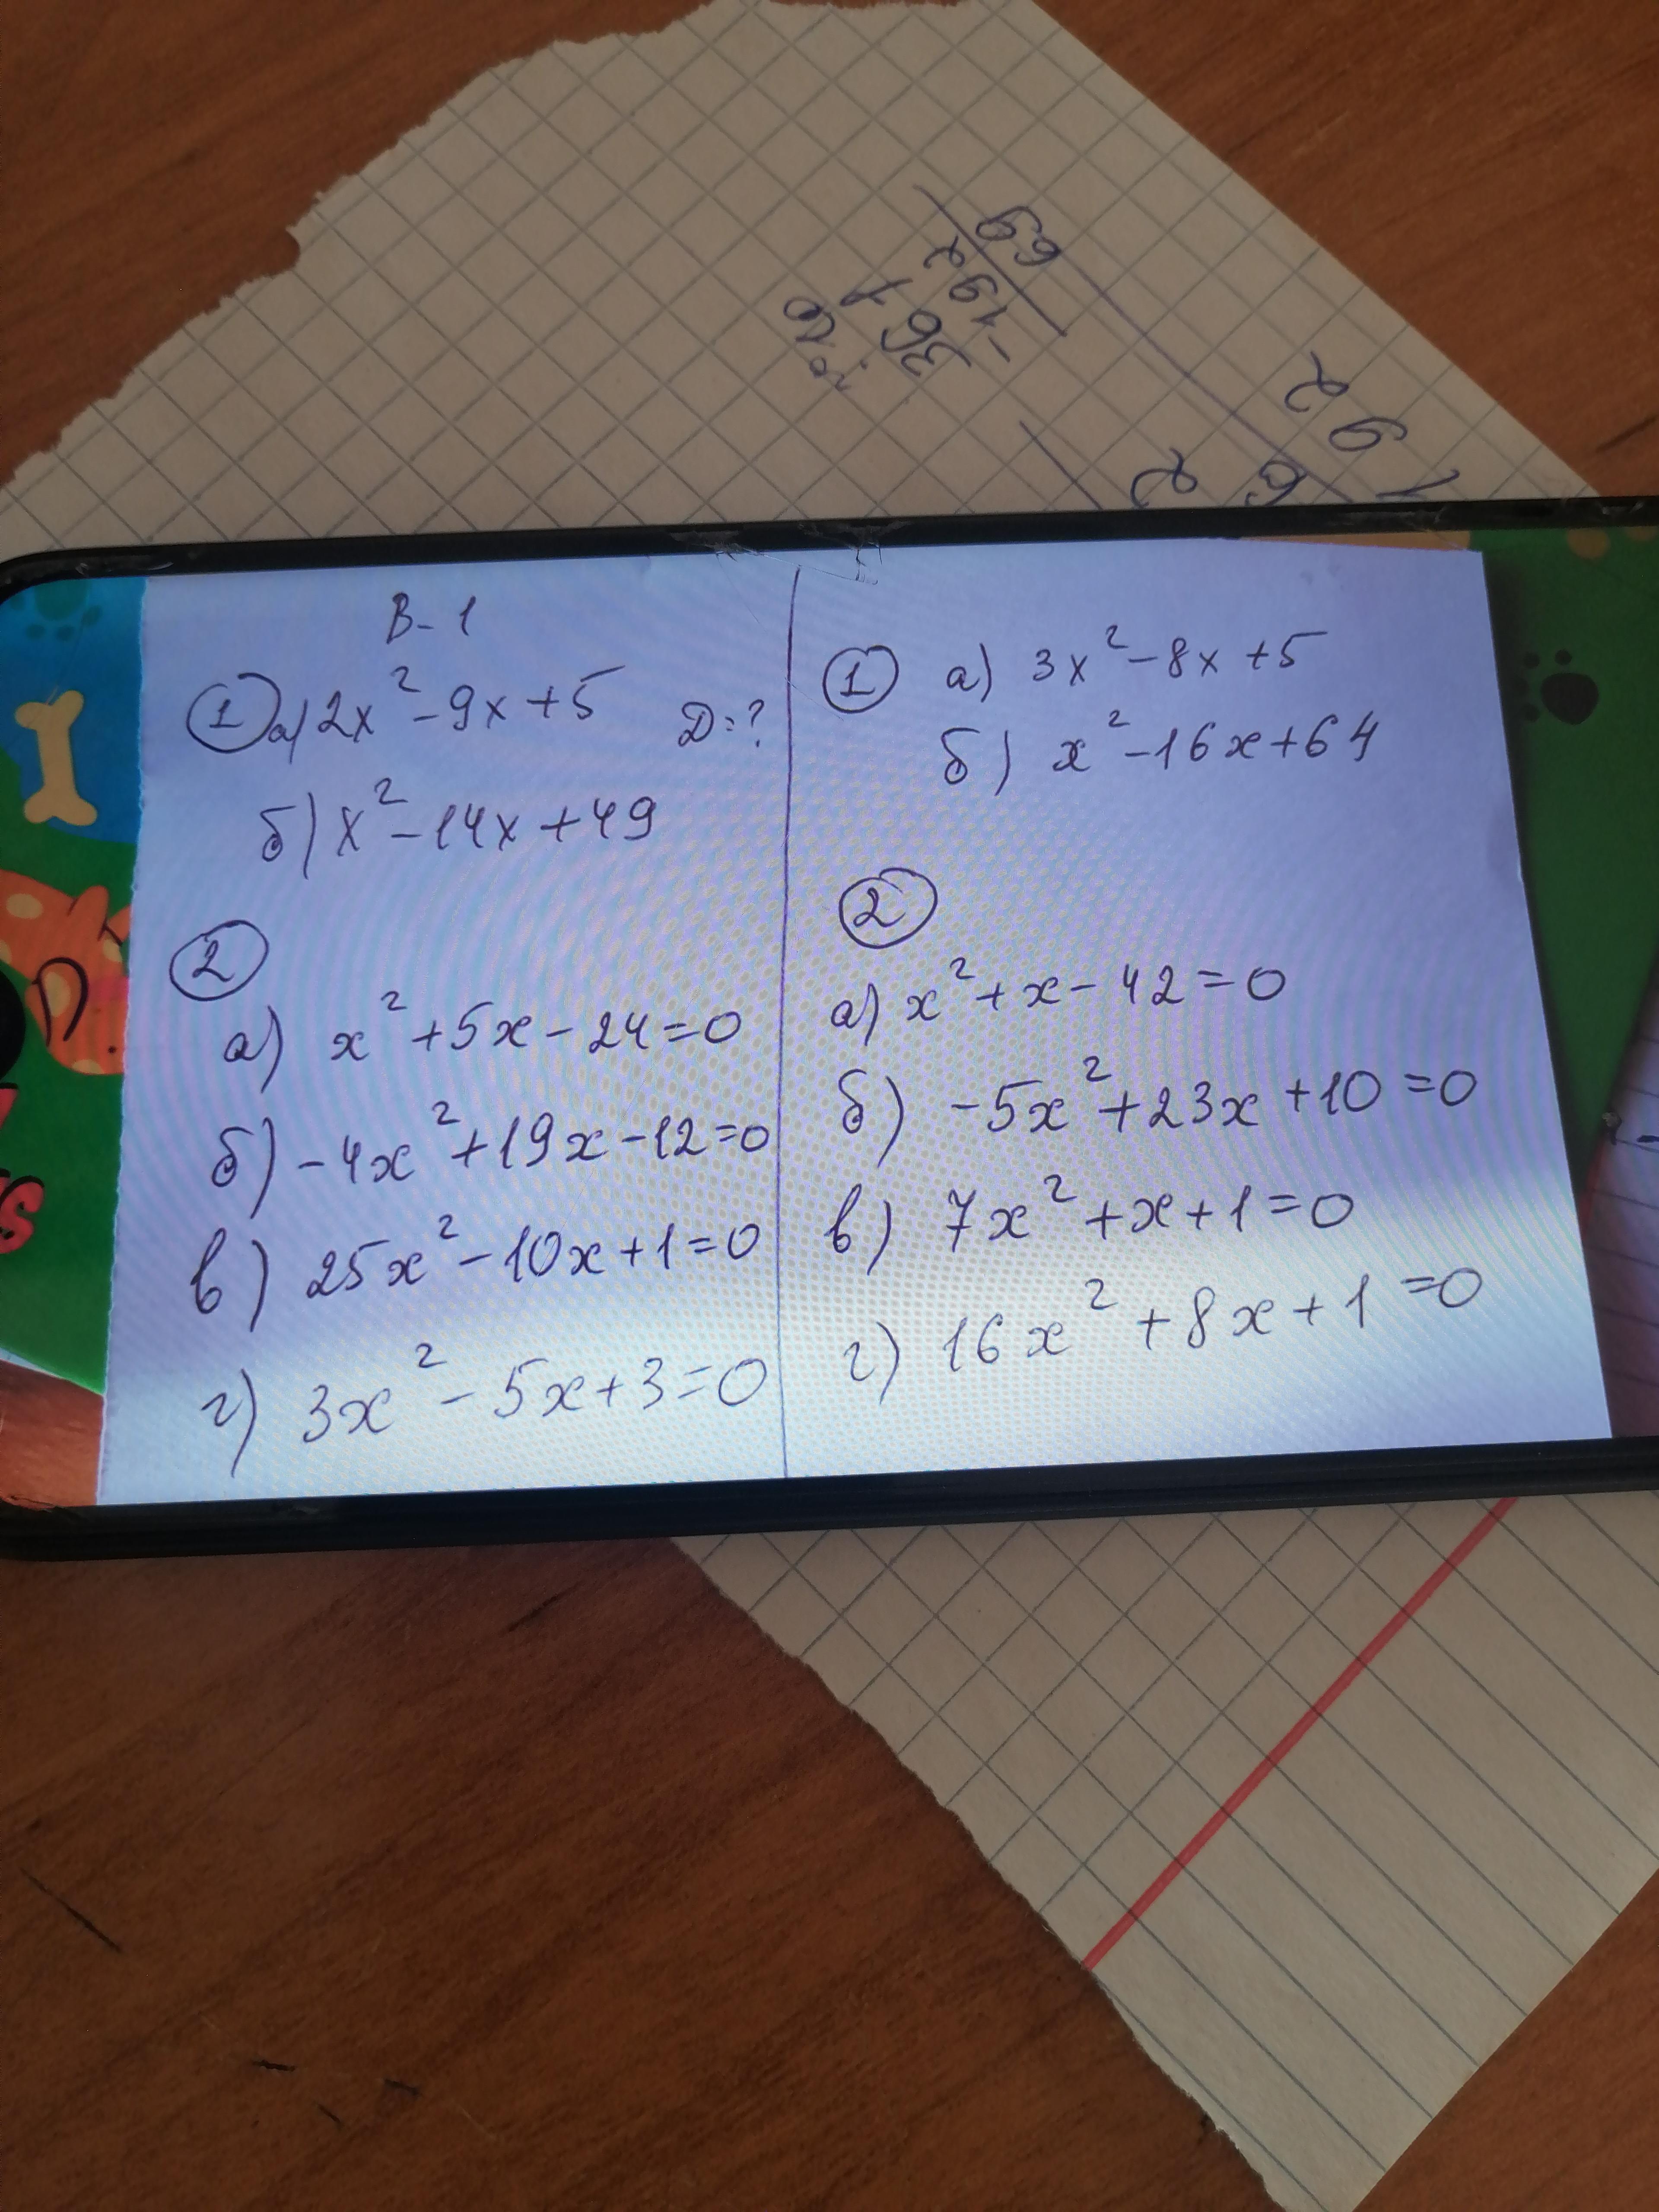 69
192
361
192
В-1
① а) 2x² - 9x + 5 D=?
б) x² - 14x + 49
②
а) x² + 5x - 24 = 0
б) -4x² + 19x - 12 = 0
в) 25x² - 10x + 1 = 0
г) 3x² - 5x + 3 = 0
① а) 3x² - 8x + 5
б) x² - 16x + 64
②
а) x² + x - 42 = 0
б) -5x² + 23x + 10 = 0
в) 7x² + x + 1 = 0
г) 16x² + 8x + 1 = 0